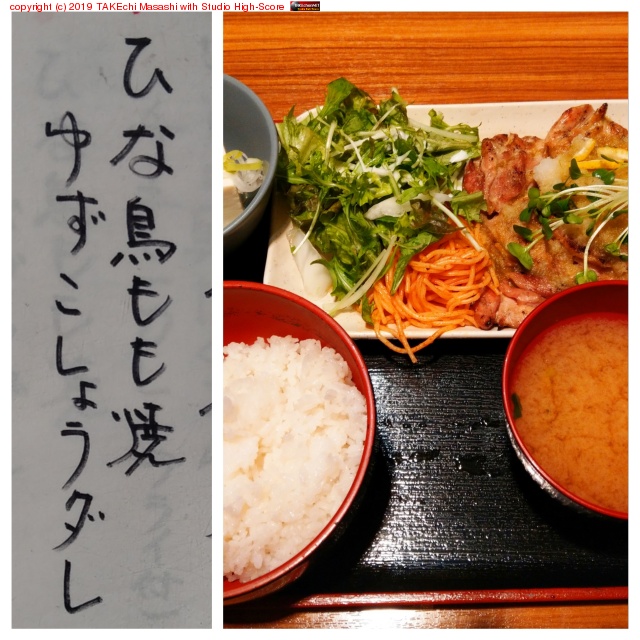 copyright (c) 2019 TAKEchi Masashi with Studio High-Score
ひな鳥もも焼
ゆずこしょうダレ